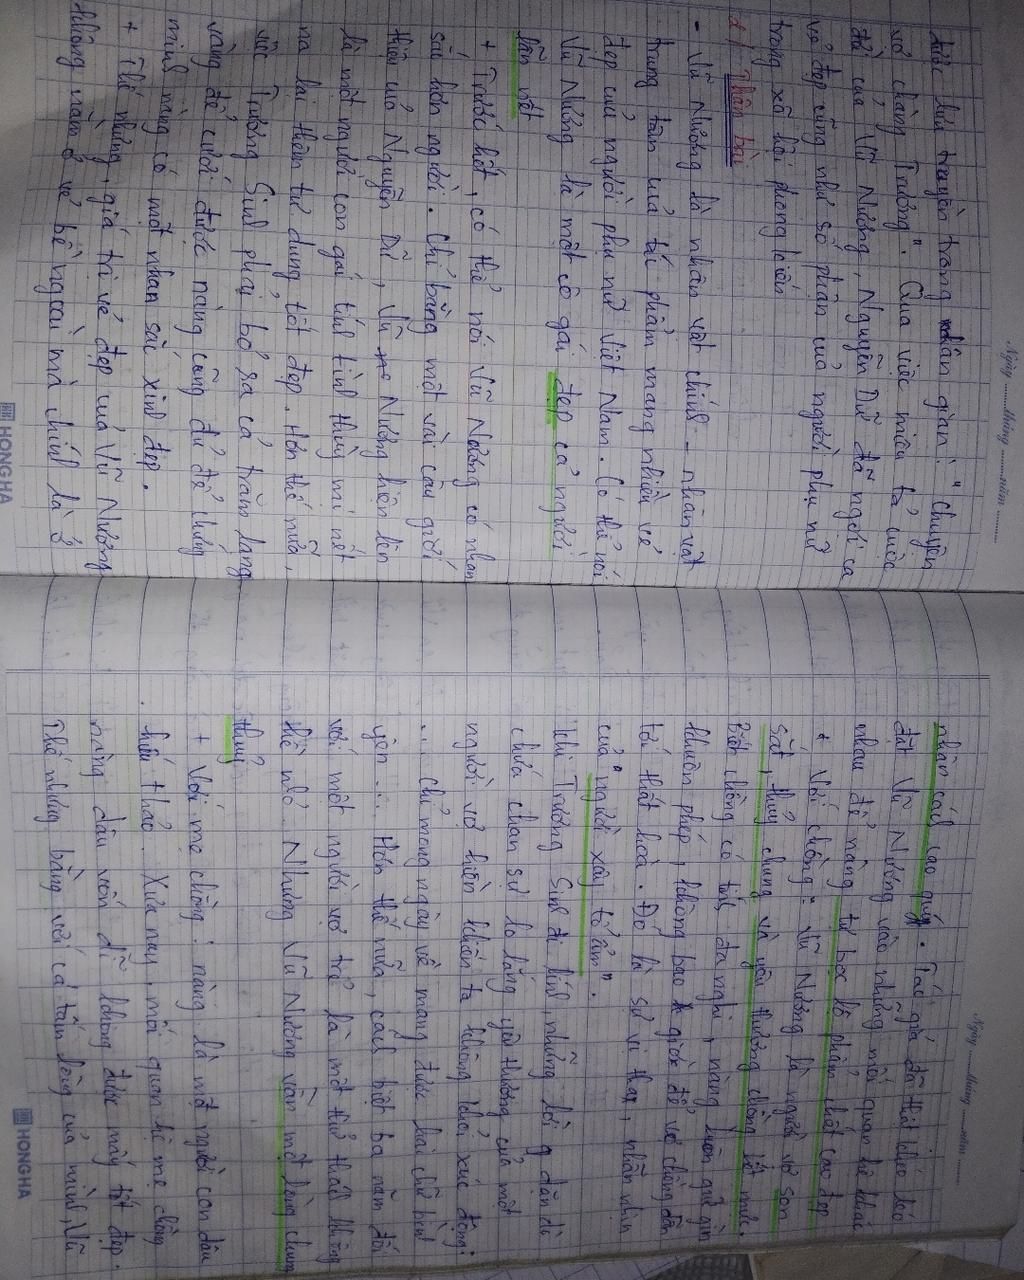 Ngày ......... tháng ......... năm .........
được lưu truyền trong dân gian: "Chuyện
vợ chàng Trương". Qua việc miêu tả cuộc
đời của Vũ Nương, Nguyễn Dữ đã ngợi ca
vẻ đẹp cũng như số phận của người phụ nữ
trong xã hội phong kiến
2/ Thân bài
- Vũ Nương là nhân vật chính - nhân vật
trung tâm của tác phẩm mang nhiều vẻ
đẹp của người phụ nữ Việt Nam. Có thể nói
Vũ Nương là một cô gái đẹp cả người
lẫn nết
+ Trước hết, có thể nói Vũ Nương có nhan
sắc hơn người. Chỉ bằng một vài câu giới
thiệu của Nguyễn Dữ, Vũ Nương hiện lên
là một người con gái tính tình thùy mị nết
na lại thêm tư dung tốt đẹp. Hơn thế nữa,
việc Trương Sinh phải bỏ ra cả trăm lạng
vàng để cưới được nàng cũng đủ để chứng
minh nàng có một nhan sắc xinh đẹp.
+ Thế nhưng, giá trị vẻ đẹp của Vũ Nương
không nằm ở vẻ bề ngoài mà chính là ở
HONG HA
Ngày ......... tháng ......... năm .........
nhân cách cao quý. Tác giả đã thật khéo léo
đặt Vũ Nương vào những mối quan hệ khác
nhau để nàng tự bộc lộ phẩm chất cao đẹp
+ Với chồng: Vũ Nương là người vợ son
sắt, thủy chung và yêu thương chồng hết mực.
Biết chồng có tính đa nghi, nàng luôn giữ gìn
khuôn phép, không bao giờ để vợ chồng dẫn
tới thất hoà. Đó là sự vị tha, nhẫn nhịn
của "người xây tổ ấm".
Khi Trương Sinh đi lính, những lời dặn dò
chứa chan sự lo lắng yêu thương của một
người vợ hiền khiến ta không khỏi xúc động:
"... chỉ mong ngày về mang được hai chữ bình
yên ... Hơn thế nữa, cách biệt ba năm đối
với một người vợ trẻ là một thử thách không
hề nhỏ. Nhưng Vũ Nương vẫn một lòng chung
thủy
+ Với mẹ chồng: nàng là một người con dâu
hiếu thảo. Xưa nay, mối quan hệ mẹ chồng
nàng dâu vốn dĩ không được mấy tốt đẹp.
Thế nhưng bằng với cả tấm lòng của mình, Vũ
HONG HA